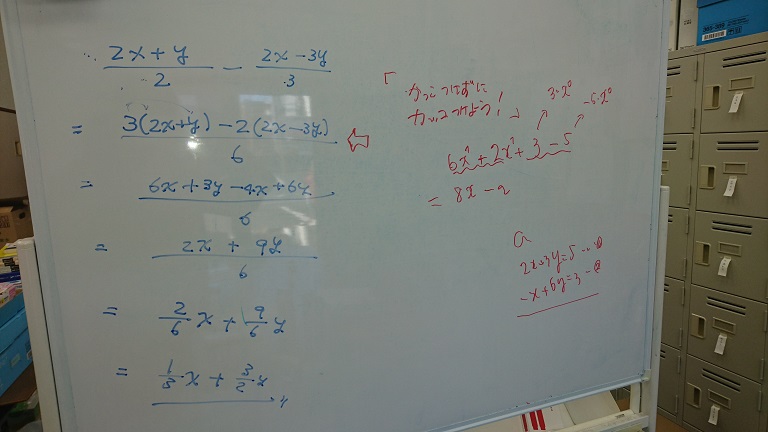 (2x+y)/2 - (2x-3y)/3
= (3(2x+y)-2(2x-3y))/6
= (6x+3y-4x+6y)/6
= (2x+9y)/6
= 2/6 x + 9/6 y
= 1/3 x + 3/2 y
「かっこつけずに
カッコつけよう!」
3·x⁰
-5·x⁰
6x¹+2x¹+3-5
= 8x-2
2x+3y=5…①
-x+6y=3-②